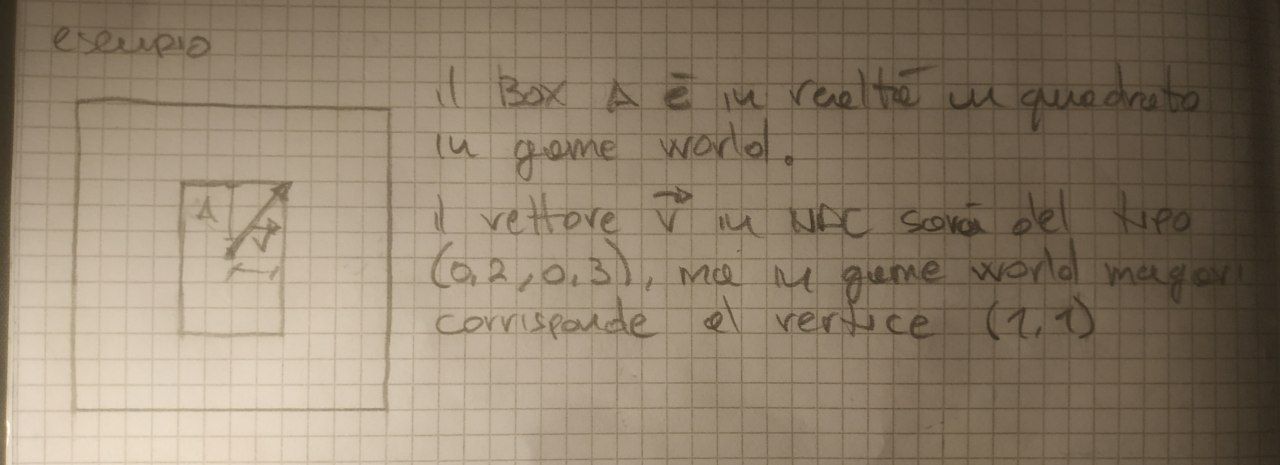 esempio
il Box A è in realtà un quadrato
in game world.
A
il vettore v in NDC sarà del tipo
v
(0,2, 0,3), ma in game world magari
corrisponde al vertice (1,1)